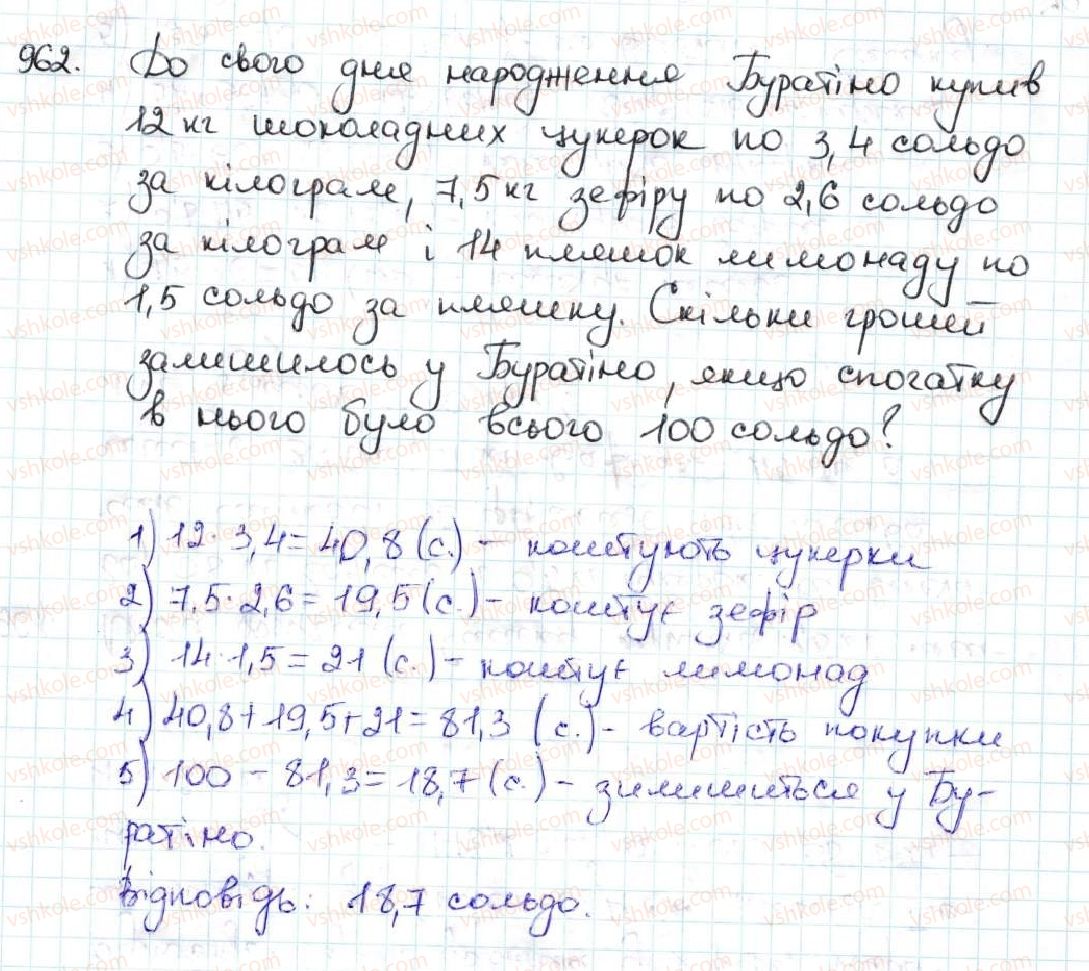 962. До свого дня народження Буратіно купив
12 кг шоколадних цукерок по 3,4 сольдо
за кілограм, 7,5 кг зефіру по 2,6 сольдо
за кілограм і 14 пляшок лимонаду по
1,5 сольдо за пляшку. Скільки грошей
залишилось у Буратіно, якщо спочатку
в нього було всього 100 сольдо?
1) 12 · 3,4 = 40,8 (с.) - коштують цукерки
2) 7,5 · 2,6 = 19,5 (с.) - коштує зефір
3) 14 · 1,5 = 21 (с.) - коштує лимонад
4) 40,8 + 19,5 + 21 = 81,3 (с.) - вартість покупки
5) 100 - 81,3 = 18,7 (с.) - зилишиться у Бу-
ратіно.
Відповідь: 18,7 сольдо.